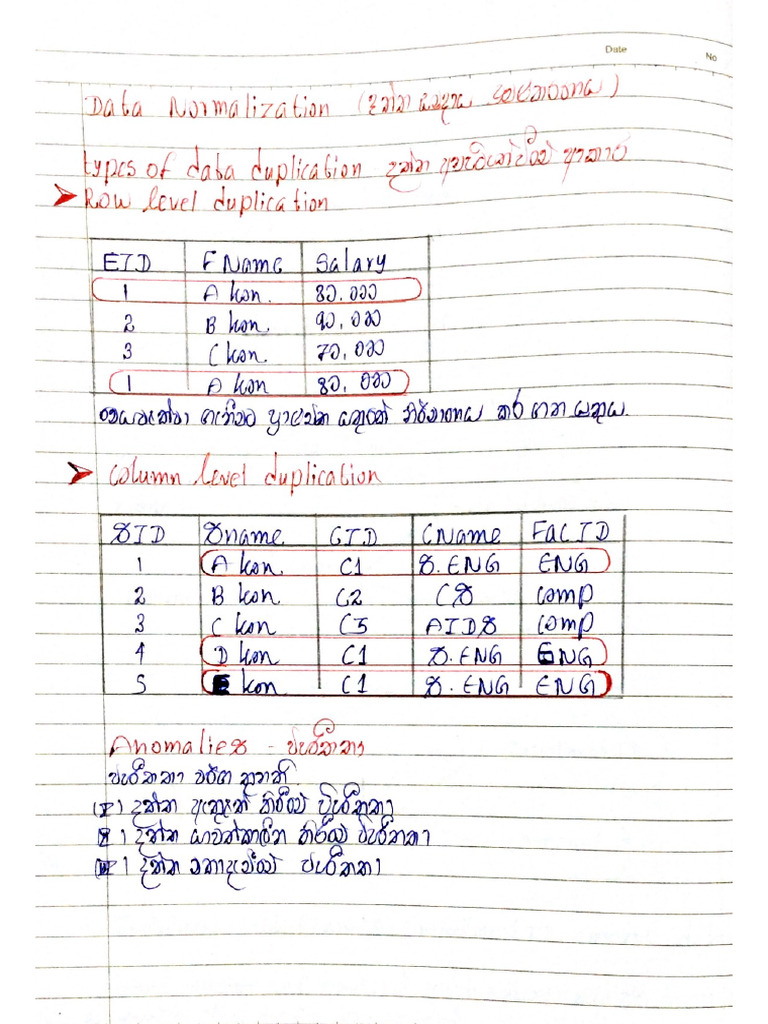 Date
No
Data Normalization (දත්ත
types of data duplication දත්ත ආකාර
Row level duplication
EID F Name Salary
1 A kon. 80,000
2 B kon. 90,000
3 C kon. 70,000
1 A kon 80,000
ප්‍රාථමික යතුරක් නිර්මාණය කර ගත යුතුය.
Column level duplication
SID Sname CID CName FacID
1 A kon. C1 S.ENG ENG
2 B kon C2 CS comp
3 C kon C3 AIDS comp
4 D kon C1 S.ENG ENG
5 E kon C1 S.ENG ENG
Anomalies -
වර්ග තුනකි
දත්ත ඇතුළත් කිරීමේ
දත්ත යාවත්කාලීන කිරීමේ
දත්ත